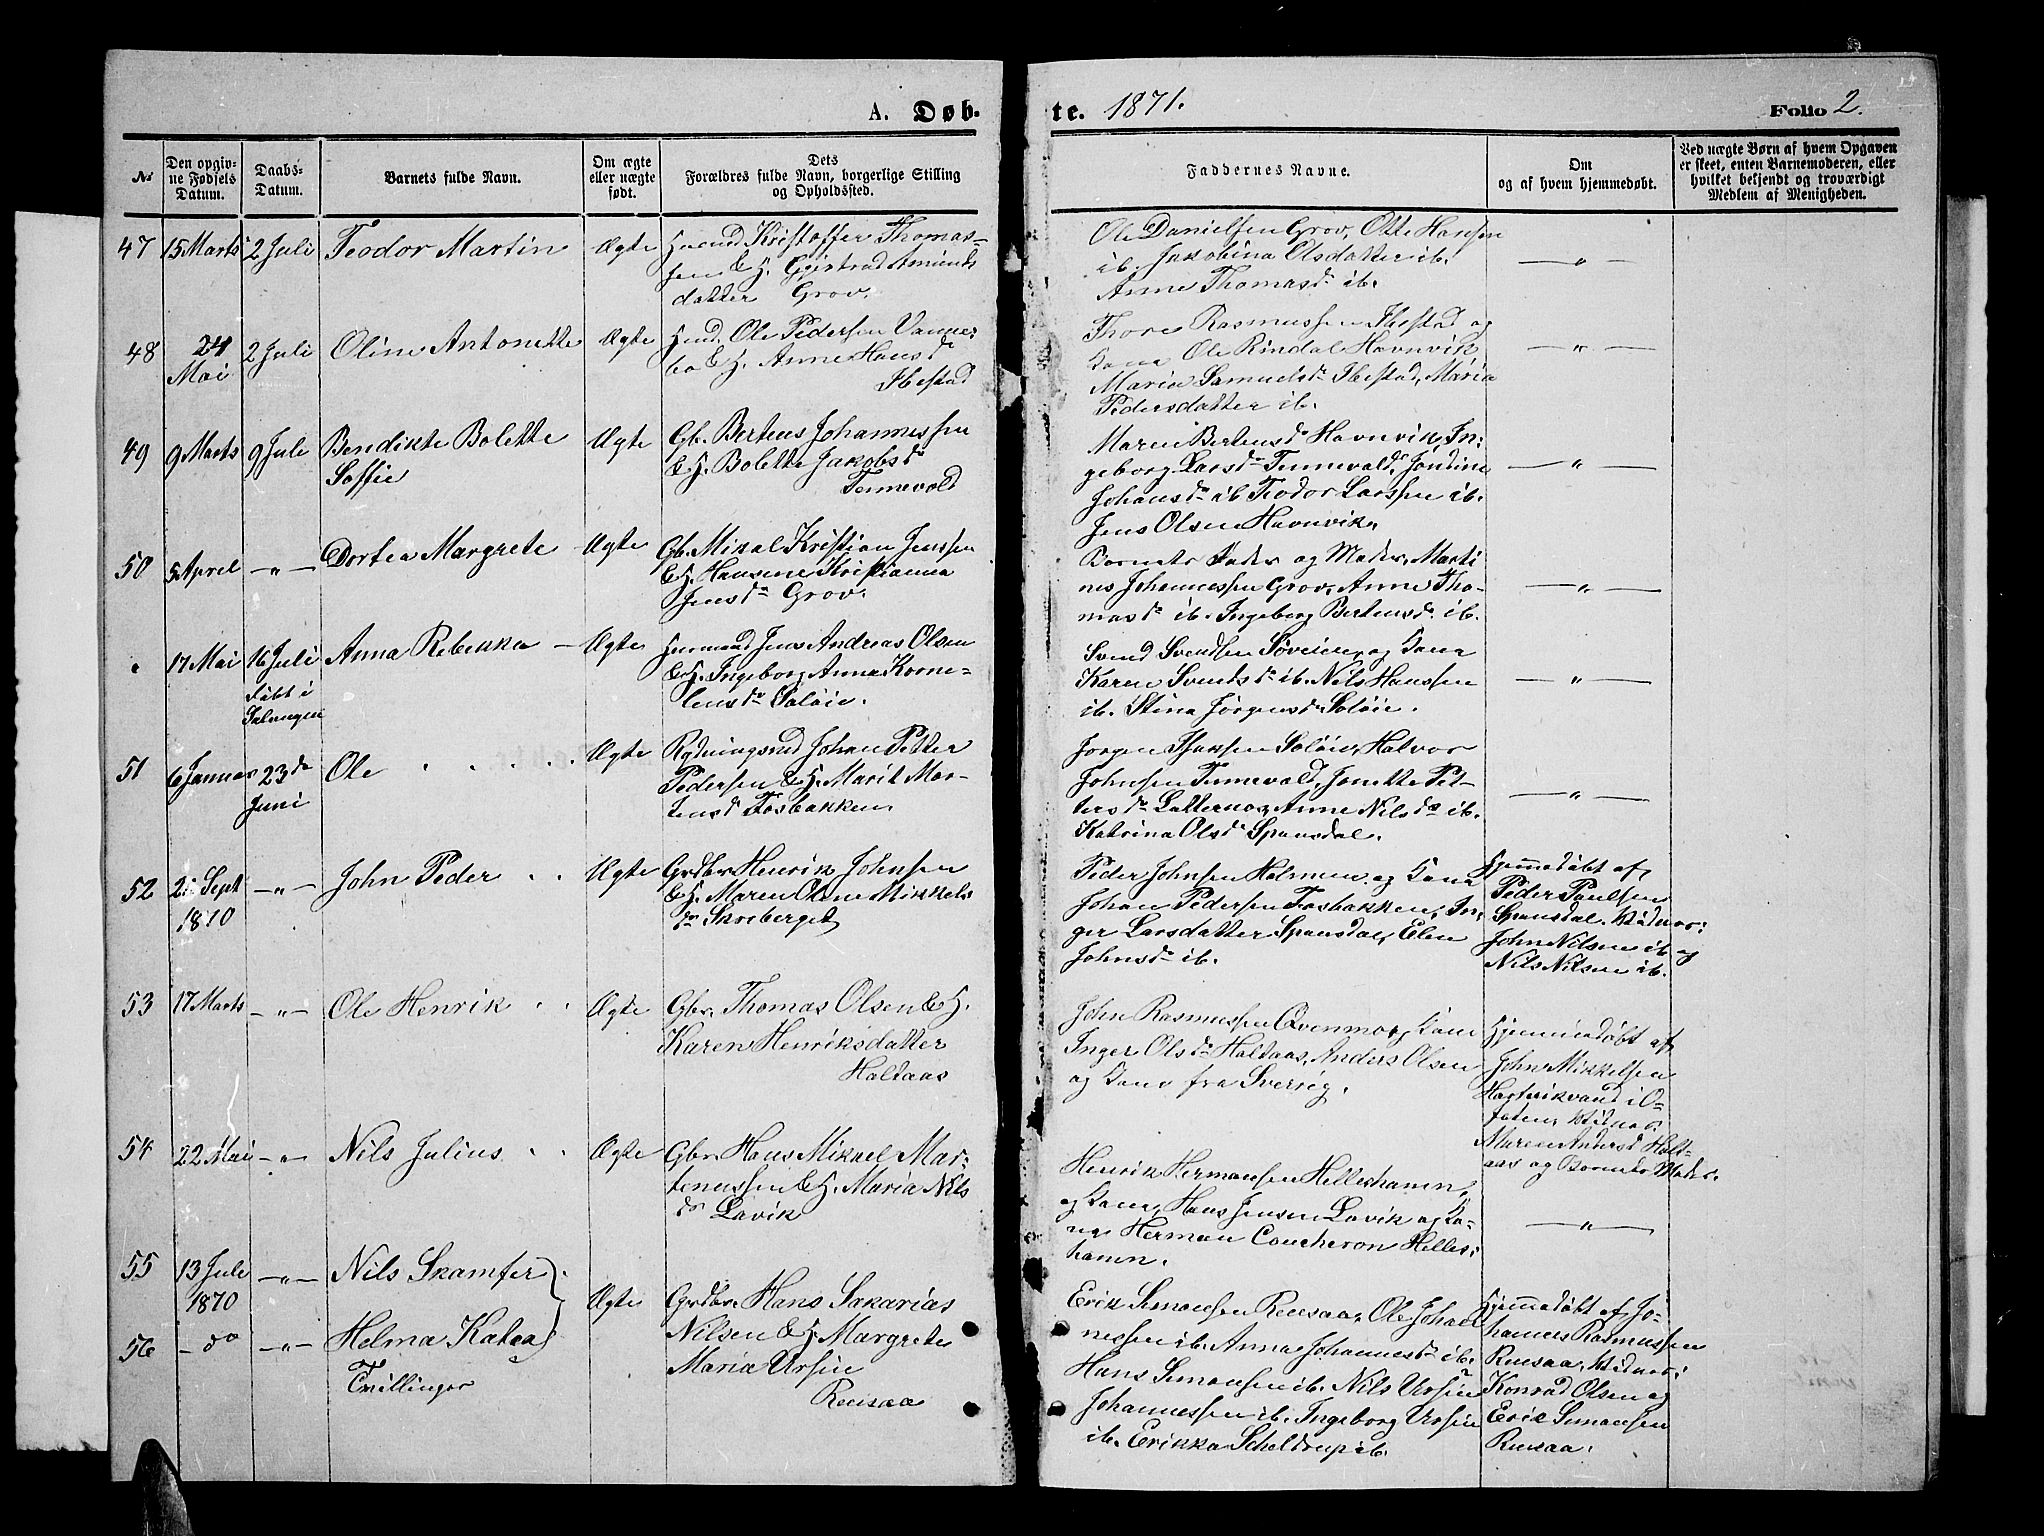 A. Døb-
te. 1871.
Folio 2.
№
Den opgiv-
ne Fødsels
Datum.
Daabs-
Datum.
Barnets fulde Navn.
Om ægte
eller uægte
født.
Dets
Forældres fulde Navn, borgerlige Stilling
og Opholdssted.
Faddernes Navne.
Om
og af hvem hjemmedøbt.
Ved uægte Børn af hvem Opgaven
er skeet, enten Barnemoderen, eller
hvilket bekjendt og troværdigt
Medlem af Menigheden.
47 15 Marts 2 Juli Teodor Martin Ægte
Kristoffer Thomas-
sen & H. Amunds
datter Grov.
Ole Danielsen Grov, Otte Hansen
ib. Jakobina Olsdatter ib.
Anne Thomasd ib.
— " —
48 24 Mai 2 Juli Oline Antonette Ægte
Ole Pedersen
& H. Anne Hansd
Ibestad
Thore Rasmussen Ibestad og
Kone Ole Rindal Havnvik
Maria Samuelsd Ibestad, Maria
Pedersdatter ib.
— " —
49 9 Marts 9 Juli Bendikte Bolette
Soffie
Ægte
Gb. Berteus Johannessen
& H. Bolette Jakobsd
Tennevold
Maren Bertensd Havnvik, In-
geborg Larsd Tennevold, Jondine
Johansd ib Teodor Larssen ib.
Jens Olsen Havnvik.
— " —
50 5 April — " — Dortea Margrete Ægte
Gb. Mikal Kristian Jenssen
& H. Hansine Kristianna
Jensd Grov.
Barnets Fader og Moder, Marti
nus Johannessen Grov, Anne Tho-
masd ib. Ingeborg Bertensd ib.
— " —
17 Mai 16 Juli
døbt i
Salangen
Anna Rebekka — Ægte
Jens Andreas Olsen
& H. Ingeborg Anna Korne-
lensd Soløie.
Svend Svendsen Søveien og Kone
Karen Svendsd ib. Nils Hanssen
ib. Stina Jørgensd Soløie.
— " —
51 6 Januar 23de
Juni
Ole Ægte
Rydningsmd Johan Petter
Pedersen & H. Marit Mor-
tensd Fosbakken
Jørgen Soløie, Halvor
Johnsen Tennevold, Jonette Pet-
tersd Anne Nilsd ib.
Katrina Olsd Spansdal.
— " —
52 Sept
1870
— " — John Peder Ægte
Grdbr Henrik Johnsen
& H. Maren Oline Mikkels
d Skreberget
Peder Johnsen og Kone
Johan Pedersen Fosbakken, In-
ger Larsdatter Spansdal, Elen
Johnsd ib.
Hjemmedøbt af
Peder Paulsen
Spansdal. Vidner:
John Nilsen ib og
Nils Nilsen ib.
53 17 Marts — " — Ole Henrik Ægte
Gbr. Thomas Olsen & H.
Karen Henriksdatter
Holtaas
John Rasmussen Qvenmo, Kone
Inger Olsd Holtaas, Anders Olsen
og Kone fra Sverrig.
Hjemmedøbt af
John Mikkelsen
Hartvikvand i O-
foten, Vidner
Maren Andersd Holt-
aas og Barnets Moder.
54 22 Mai — " — Nils Julius Ægte
Gbr. Hans Mikael Mar-
tenussen & H. Maria Nils
d Lavik
Henrik Hermansen Helleshamn
og Kone, Hans Jensen Lavik og Ko-
ne Herman Coucheron Helles-
hamn.
— " —
55 13 Juli
1870
— " — Nils Skamfer
Ægte
Grdbr. Hans Sakarias
Nilsen & H. Margrete
Maria Ursin
Rensaa
56 — do — " — Helma Katea
Tvillinger
Erik Simonsen Rensaa, Ole Johan
nessen ib. Anna Johannesd ib.
Hans Simonsen ib. Nils Ursin
Johannessen ib. Ingeborg Ursin
ib. Erikka Scheldrup ib.
Hjemmedøbt af Jo-
hannes Rasmussen
Rensaa, Vidner:
Konrad Olsen og
Erik Simonsen
Rensaa.